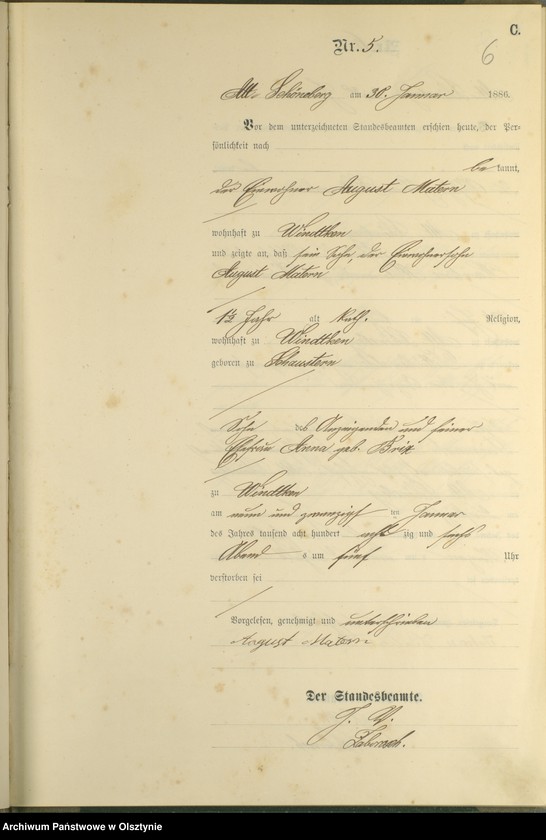 C.
Nr. 5.
6
Alt-Schöneberg am 30. Januar 1886.
Vor dem unterzeichneten Standesbeamten erschien heute, der Per-
sönlichkeit nach
be kannt,
der Einwohner August Matern
wohnhaft zu Windtken
und zeigte an, daß sein Sohn, der Einwohnersohn
August Matern
1½ Jahr alt kath. Religion,
wohnhaft zu Windtken
geboren zu Schaustern
Sohn des Anzeigenden und seiner
Ehefrau Anna geb. Brix
zu Windtken
am neun und zwanzigsten Januar
des Jahres tausend acht hundert acht zig und sechs
Abends um fünf Uhr
verstorben sei
Vorgelesen, genehmigt und unterschrieben
August Matern
Der Standesbeamte.
J. V.
Archiwum Państwowe w Olsztynie